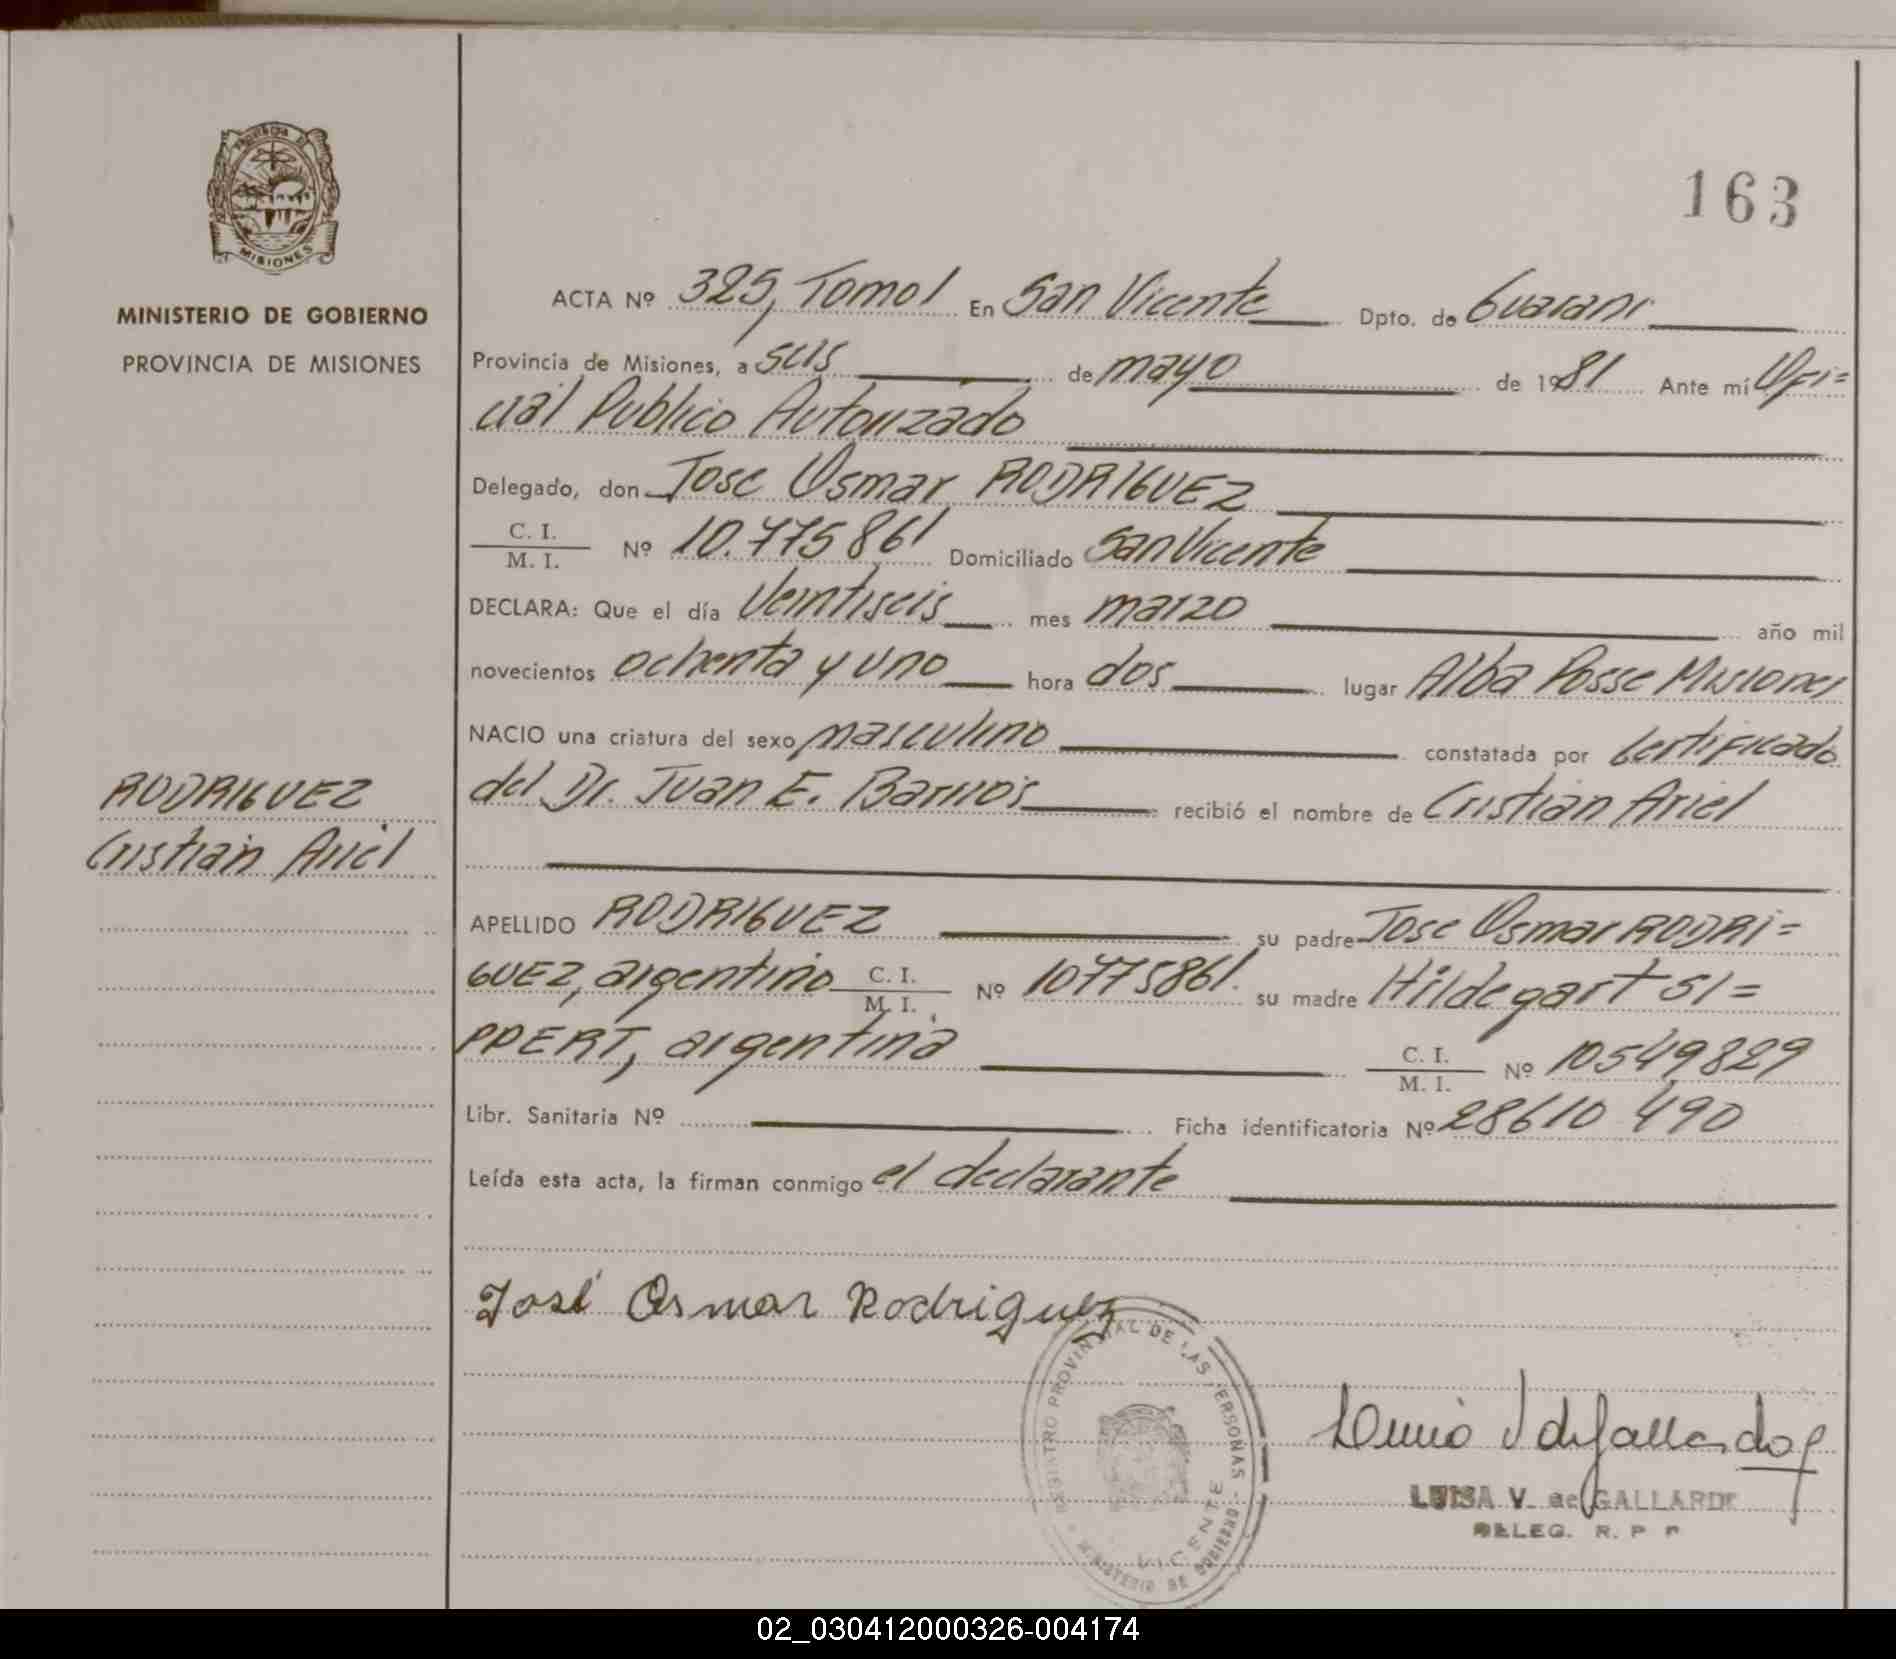 163
PROVINCIA DE
MISIONES
MINISTERIO DE GOBIERNO
PROVINCIA DE MISIONES
ACTA Nº 325, Tomo I En San Vicente Dpto. de Guarani
Provincia de Misiones, a seis de mayo de 1981 Ante mí Ofi=
cial Publico Autorizado
Delegado, don Jose Osmar RODRIGUEZ
C. I.
M. I. Nº 10.775861 Domiciliado San Vicente
DECLARA: Que el día Veintiseis mes marzo año mil
novecientos ochenta y uno hora dos lugar Alba Posse Misiones
NACIO una criatura del sexo masculino constatada por Certificado
del Dr. Juan E. Barrios recibió el nombre de Cristian Ariel
RODRIGUEZ
Cristian Ariel
APELLIDO RODRIGUEZ su padre Jose Osmar RODRI=
GUEZ, argentino C. I.
M. I. Nº 10775861. su madre Hildegart SI=
PPERT, argentina C. I.
M. I. Nº 10549829
Libr. Sanitaria Nº Ficha identificatoria Nº 28610 490
Leída esta acta, la firman conmigo el declarante
José Osmar Rodriguez
REGISTRO PROVINCIAL DE LAS PERSONAS
MINISTERIO DE GOBIERNO
VICENTE
LUISA V. de GALLARDO
DELEG. R. P. P.
02_030412000326-004174